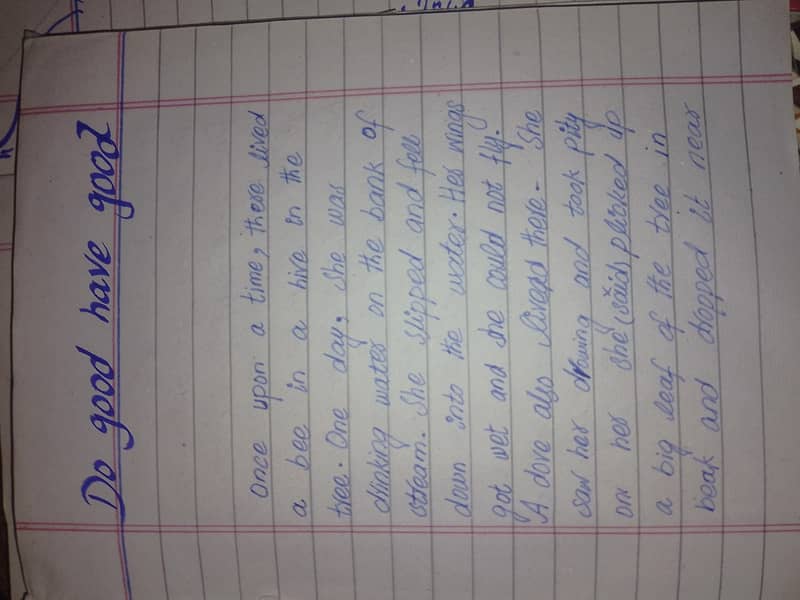 Do good have good
Once upon a time, there lived
a bee in a hive in the
tree. One day, she was
drinking water on the bank of
stream. She slipped and fell
down into the water. Her wings
got wet and she could not fly.
A dove also lived there. She
saw her drowing and took pity
on her she (said) plucked up
a big leaf of the tree in
beak and dropped it near